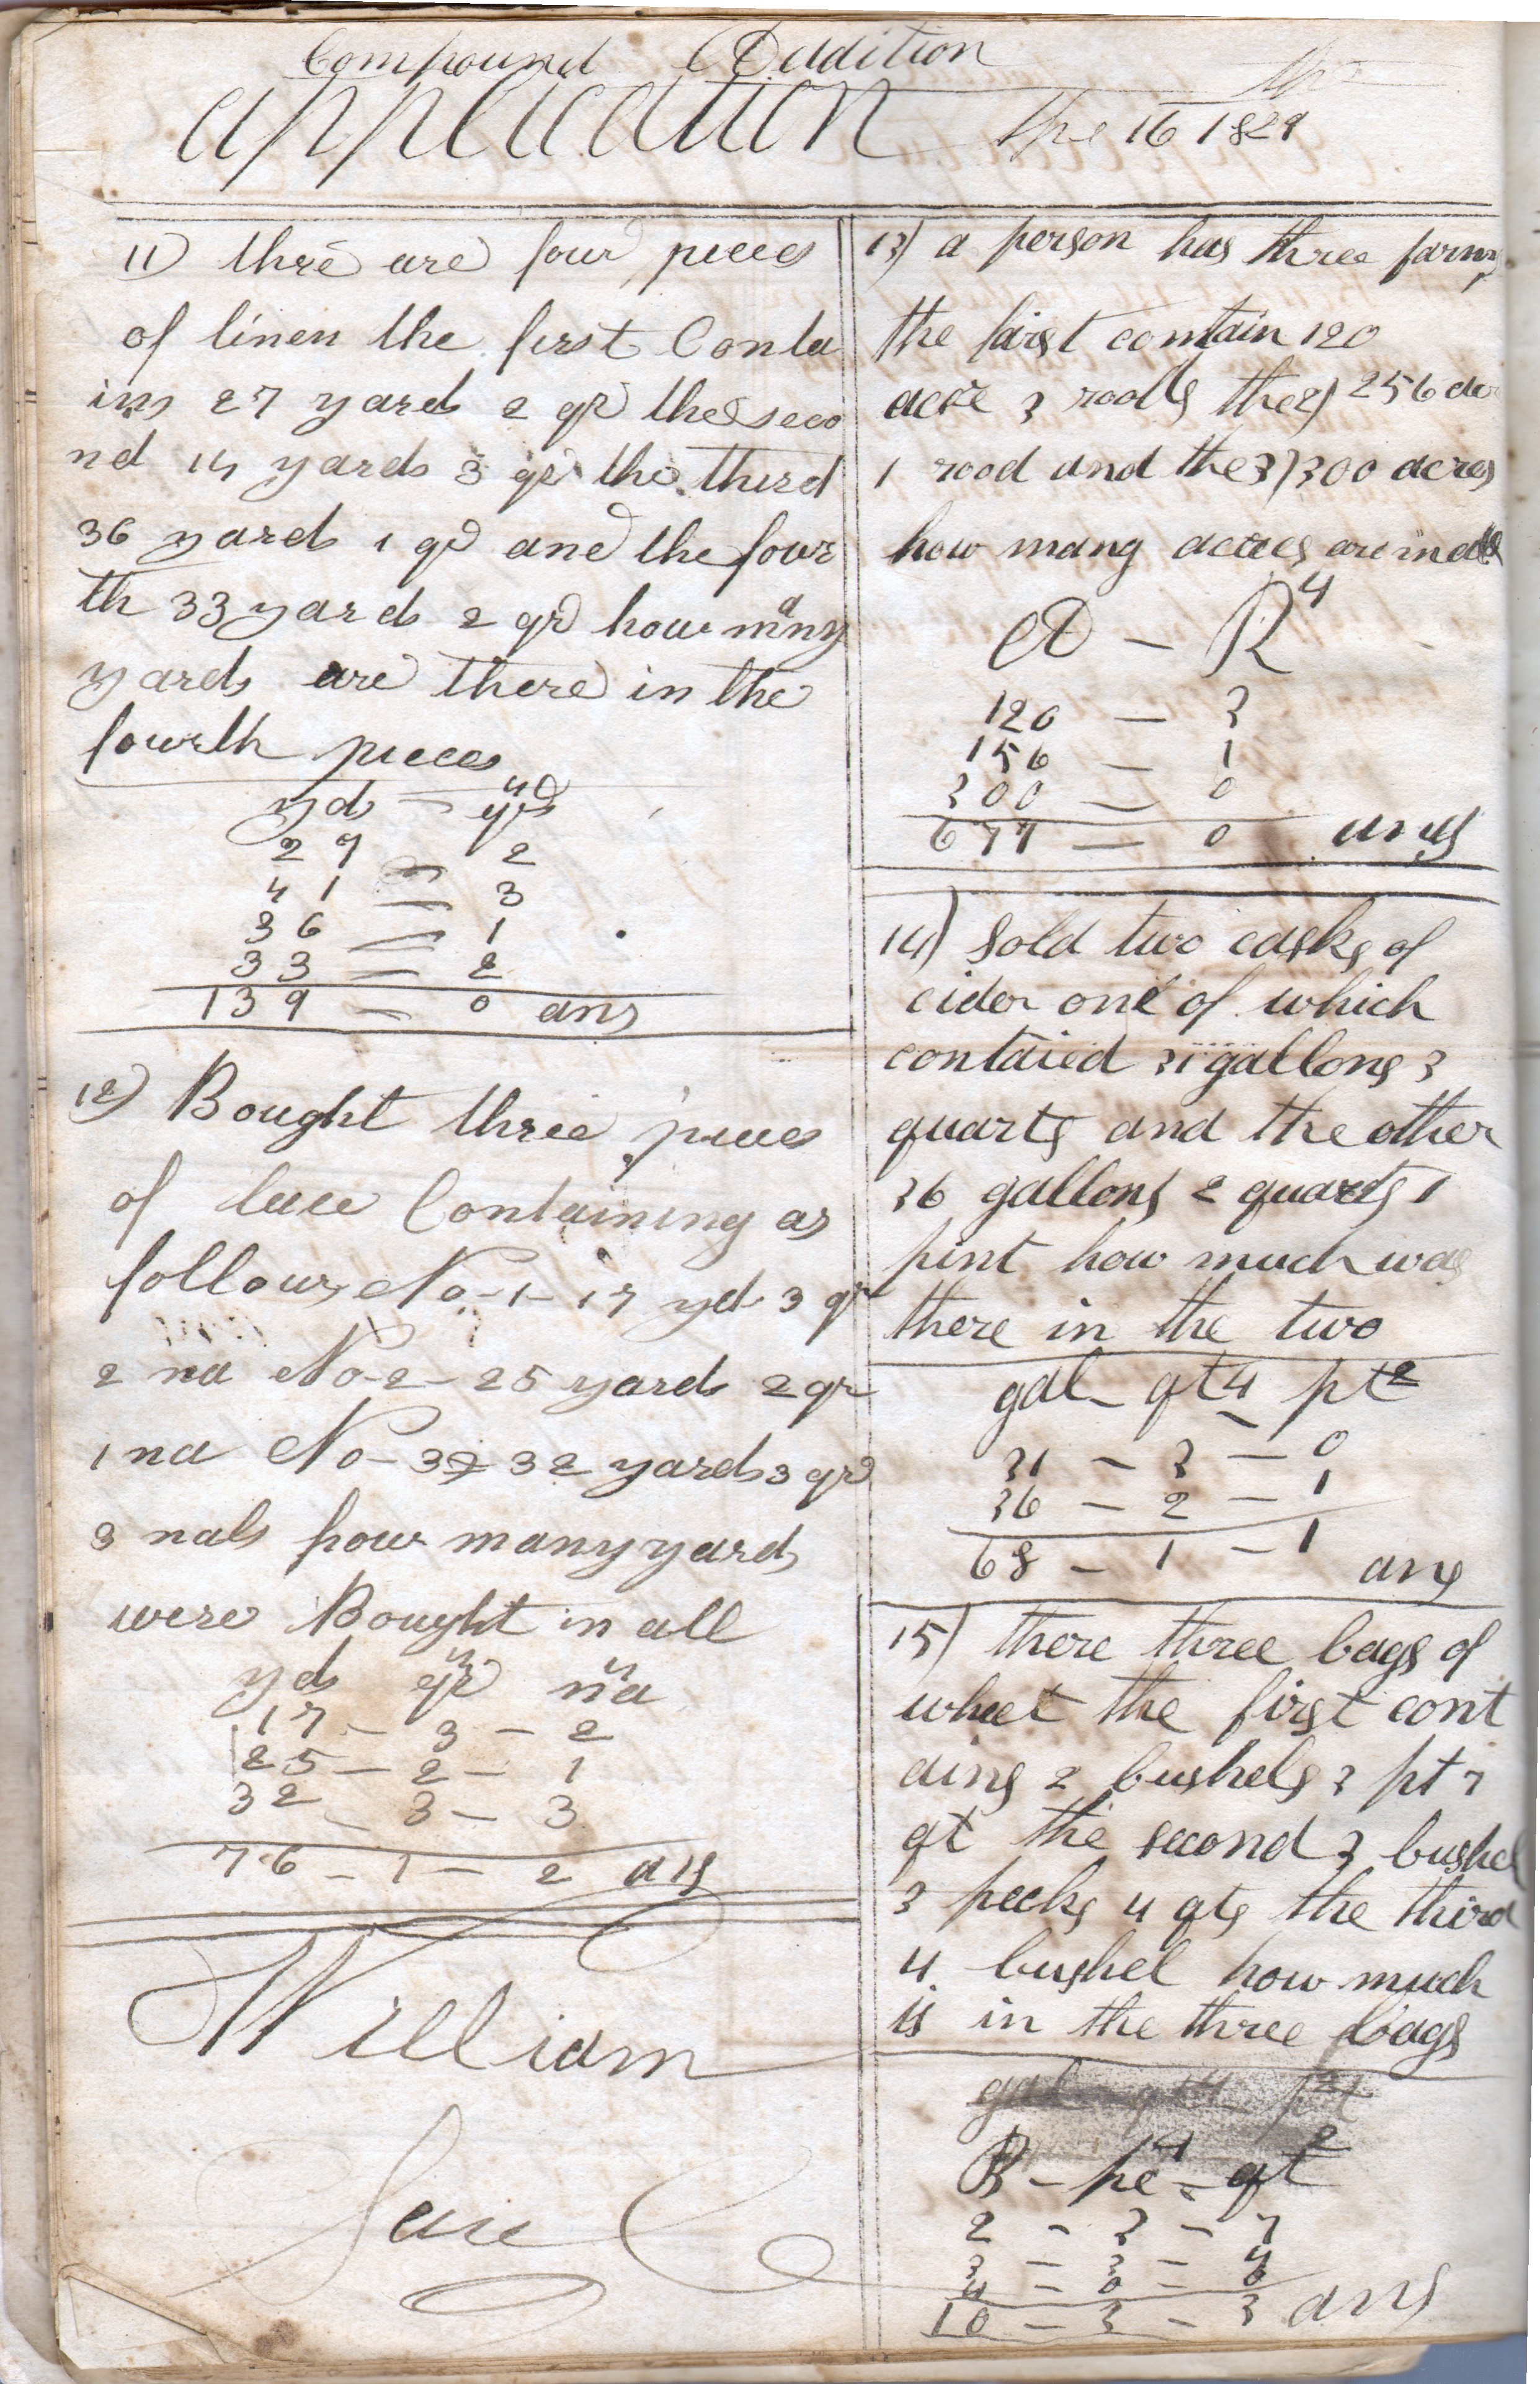 Compound Addition
application the 16 1829
11) thre are four pieces
of linen the first Conta
ins 27 yard 2 qr the seco
nd 14 yards 3 qr the third
36 yards 1 qr and the four
th 33 yards 2 qr how many
yards are there in the
fourth pieces
yd - qr 4
27 - 2
41 - 3
36 - 1
33 - 2
139 - 0 ans
12) Bought three pieces
of lace Containing as
follows No-1-17 yd 3 qr
2 na No-2-25 yards 2 qr
1 na No-3 32 yards 3 qr
3 nals how many yards
were Bought in all
yd qr 4 na 4
17 - 3 - 2
25 - 2 - 1
32 - 3 - 3
76 - 1 - 2 ans
William
13) a person has three farms
the fairst contain 120
acre 3 roods the 2) 256 acr
1 rood and the 3) 300 acres
how mang acres are in all
A - R 4
120 - 3
156 - 1
300 - 0
677 - 0 ans
14) Sold two casks of
cider one of which
contaied 31 gallons 3
quarts and the other
36 gallons 2 quarts 1
pint how much was
there in the two
gal - qt 4 pt 2
31 - 3 - 0
36 - 2 - 1
68 - 1 - 1 ans
15) there three bags of
wheet the first cont
ains 2 bushels 3 pt 7
qt the second 3 bushel
3 pecks 4 qts the third
4 bushel how much
is in the three bags
gal qt 4 pt
B - pe 4 - qt 2
2 - 3 - 7
3 - 3 - 4
4 - 0 - 0
10 - 3 - 3 ans